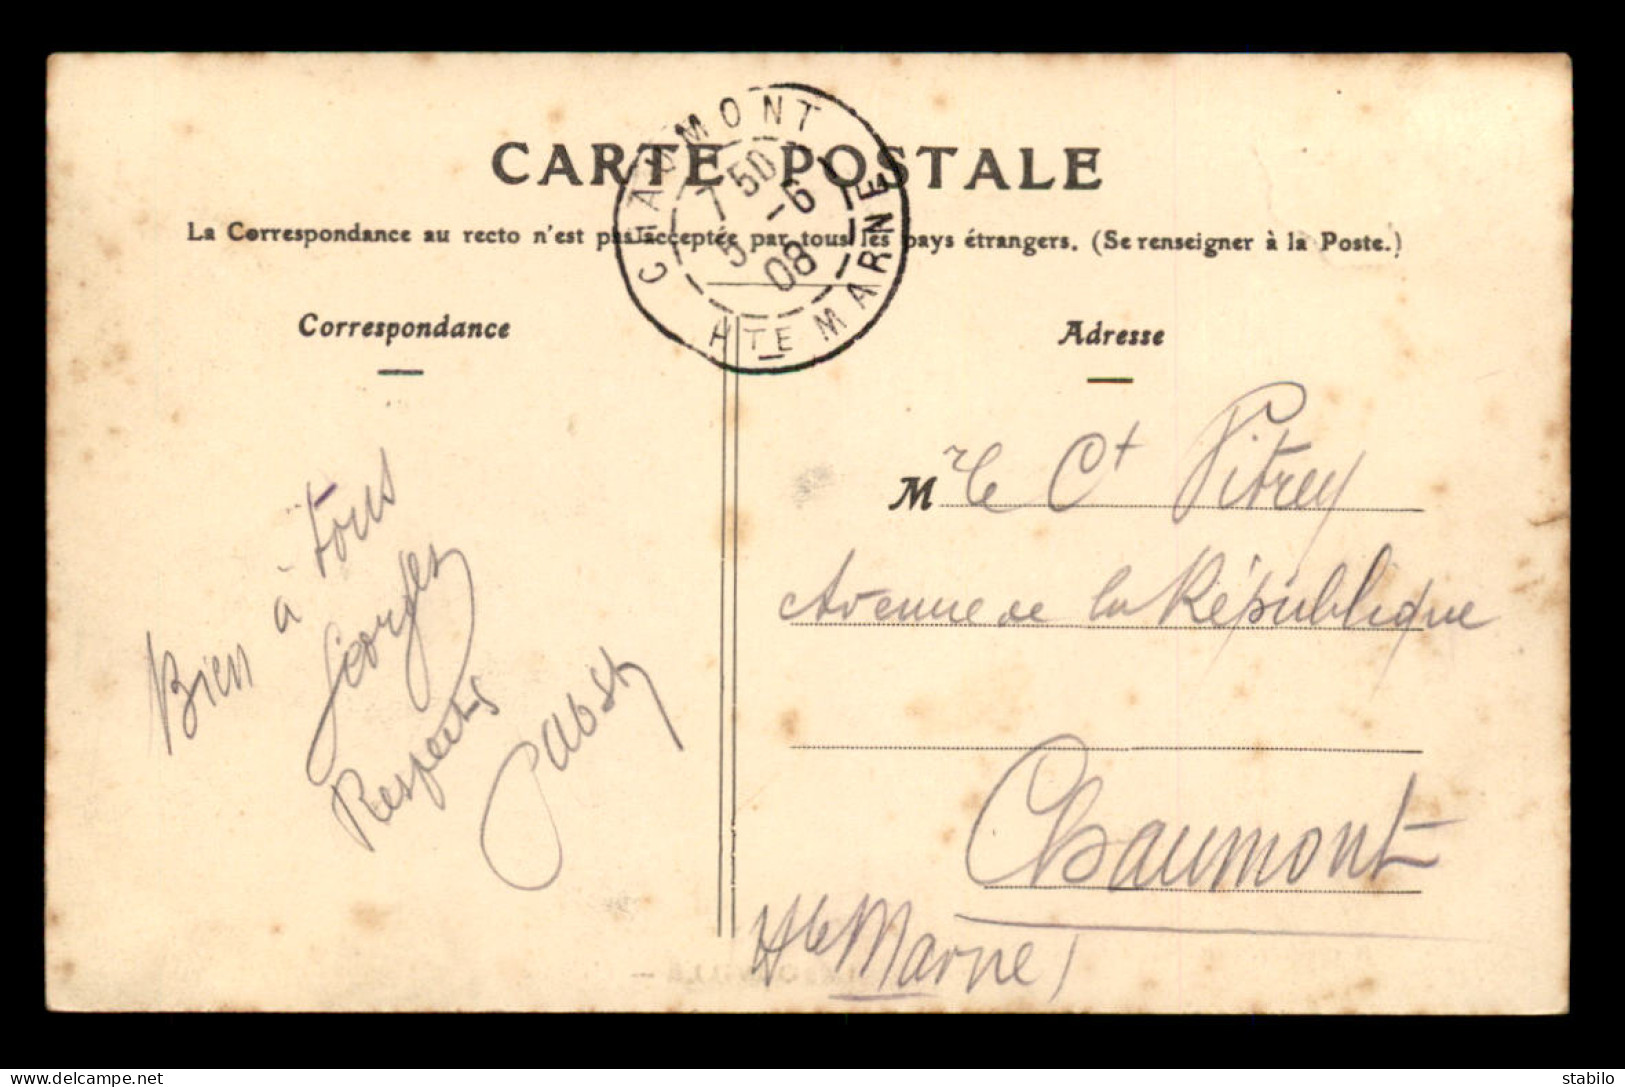 CARTE POSTALE
La Correspondance au recto n'est pas acceptée par tous les pays étrangers. (Se renseigner à la Poste.)
CHAUMONT
7 50
5 -6
08
HTE MARNE
Correspondance
Adresse
Bien à tous
Georges
Respects
Pabst
M r le Ct Vitrey
Avenue de la République
Chaumont
Hte Marne
delcampe.net
stabilo